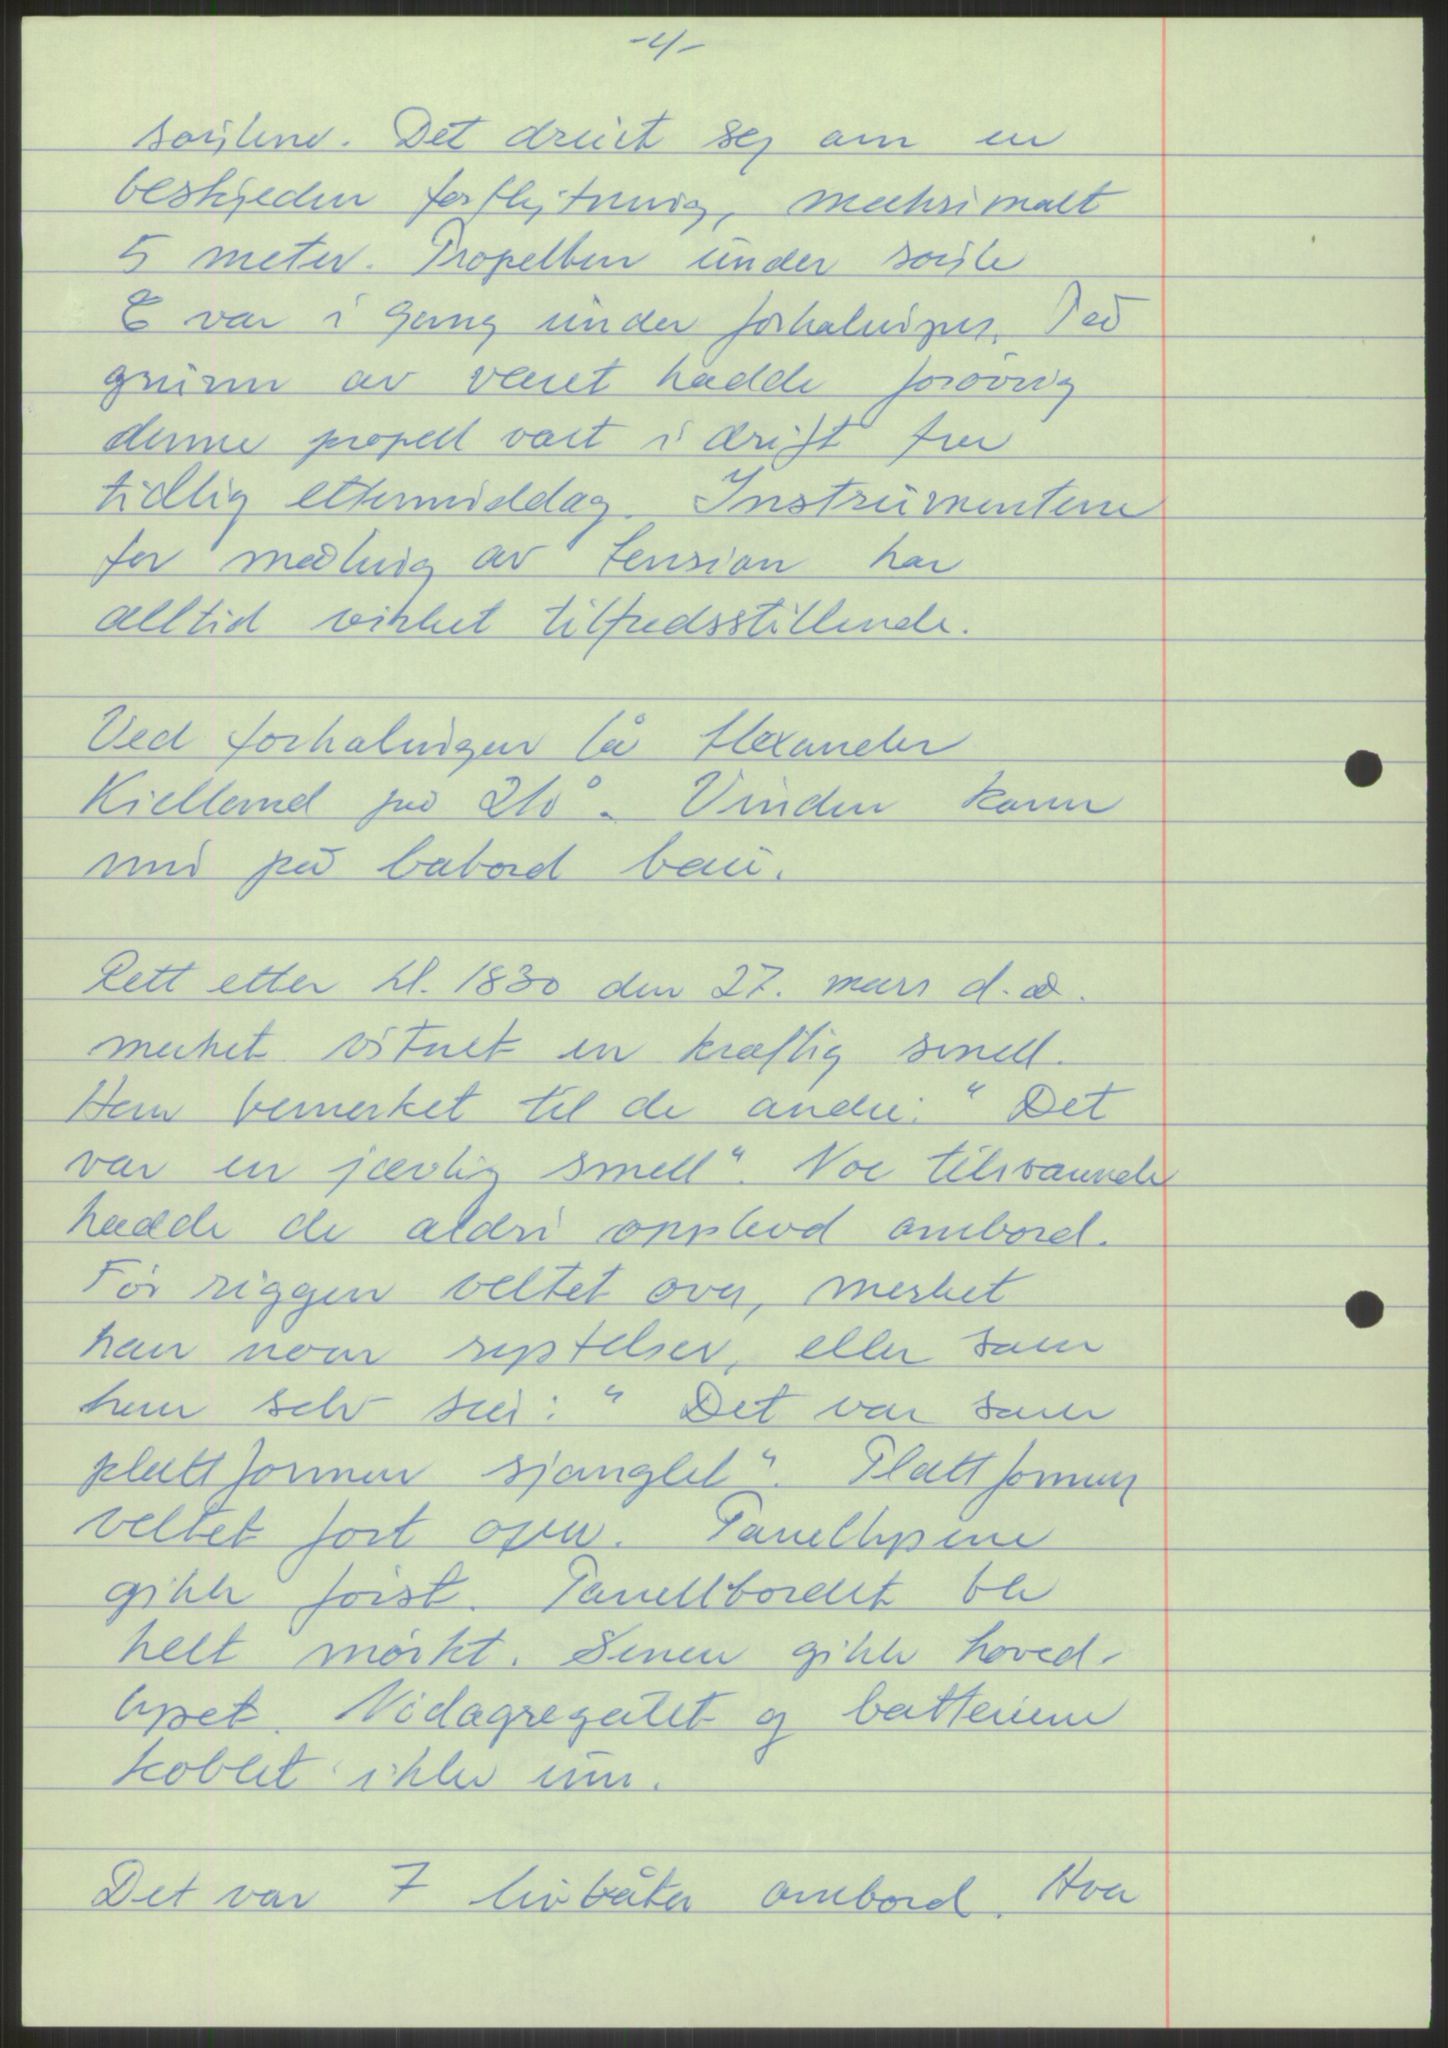 -4-
søylene. Det dreiet seg om en
beskjeden forflytning, maksimalt
5 meter. Propellen under søyle
E var i gang under forhalingen. På
grunn av været hadde forøvrig
denne propell vært i drift fra
tidlig ettermiddag. Instrumentene
for måling av tension har
alltid virket tilfredsstillende.
Ved forhalingen lå Alexander
Kielland på 210°. Vinden kom
inn på babord bau.
Rett etter kl. 1830 den 27. mars d.å.
merket vitnet en kraftig smell.
Han bemerket til de andre: "Det
var en jævlig smell". Noe tilsvarende
hadde de aldri opplevd ombord.
Før riggen veltet over, merket
han noen rystelser, eller som
han selv sier: "Det var som
plattformen sjanglet". Plattformen
veltet fort over. Panellysene
gikk først. Panelbordet ble
helt mørkt. Senere gikk hoved-
lyset. Nødagregatet og batteriene
koblet ikke inn.
Det var 7 livbåter ombord. Hver